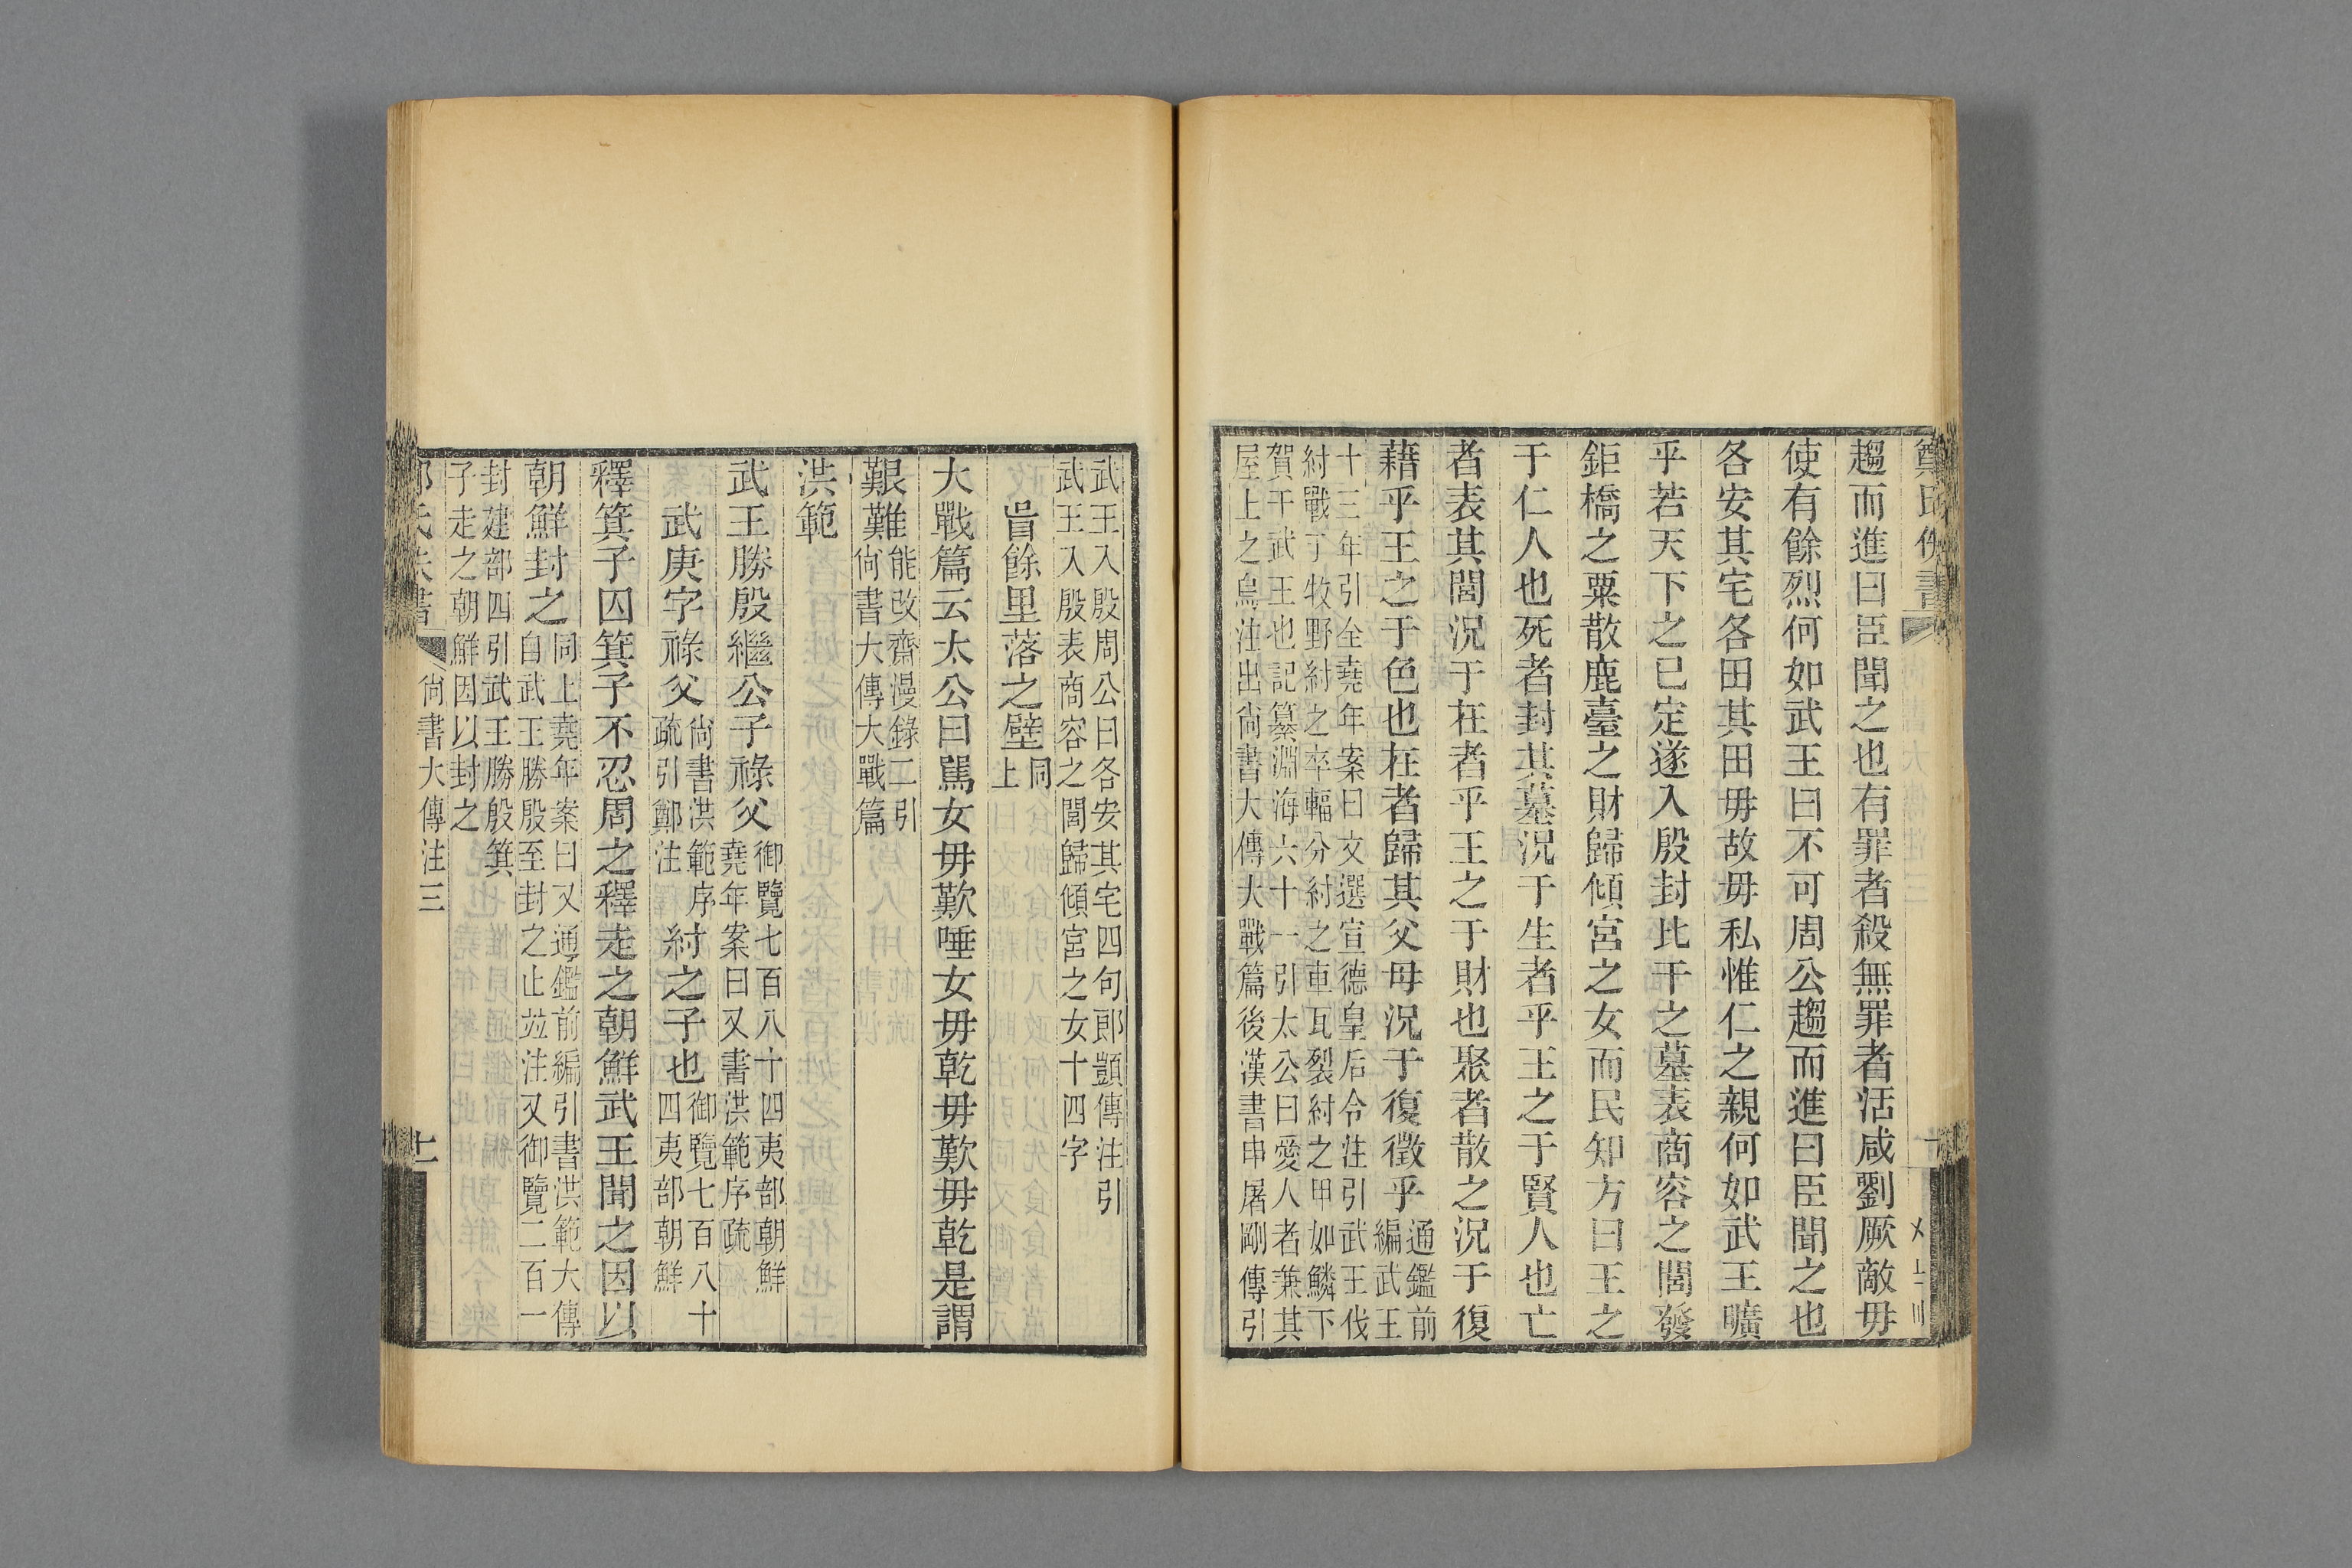 趨而進曰臣聞之也有罪者殺無罪者活咸劉厥敵毋
使有餘烈何如武王曰不可周公趨而進曰臣聞之也
各安其宅各田其田毋故毋私惟仁之親何如武王曠
乎若天下之已定遂入殷封比干之墓表商容之閭發
鉅橋之粟散鹿臺之財歸傾宮之女而民知方曰王之
于仁人也死者封其墓況于生者乎王之于賢人也亡
者表其閭況于在者乎王之于財也聚者散之況于復
藉乎王之于色也在者歸其父母況于復徵乎通鑑前
編武王
十三年引全堯年案曰文選宣德皇后令注引武王伐
紂戰于牧野紂之卒輻分紂之車瓦裂紂之甲如鱗下
賀干武王也記纂淵海六十一引太公曰愛人者兼其
屋上之烏注出尙書大傳大戰篇後漢書申屠剛傳引
武王入殷周公曰各安其宅四句郎顗傳注引
武王入殷表商容之閭歸傾宮之女十四字
胥餘里落之壁同
上
大戰篇云太公曰罵女毋歎唾女毋乾毋歎毋乾是謂
艱難能改齋漫錄二引
尙書大傳大戰篇
洪範
武王勝殷繼公子祿父御覽七百八十四夷部朝鮮
堯年案曰又書洪範序疏
武庚字祿父尙書洪範序
疏引鄭注
紂之子也御覽七百八十
四夷部朝鮮
釋箕子囚箕子不忍周之釋走之朝鮮武王聞之因以
朝鮮封之同上堯年案曰又通鑑前編引書洪範大傳
自武王勝殷至封之止竝注又御覽二百一
封建部四引武王勝殷箕
子走之朝鮮因以封之
尙書大傳注三